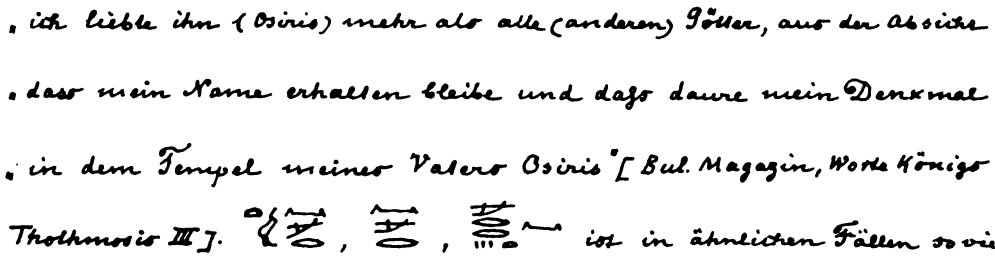 „ ich liebte ihn (Osiris) mehr als alle (anderen) Götter, aus der Absicht
„ dass mein Name erhalten bleibe und daſs daure mein Denkmal
„ in dem Tempel meines Vaters Osiris" [Bul. Magazin, Worte Königs
Thothmosis III]. , , ist in ähnlichen Fällen so vie